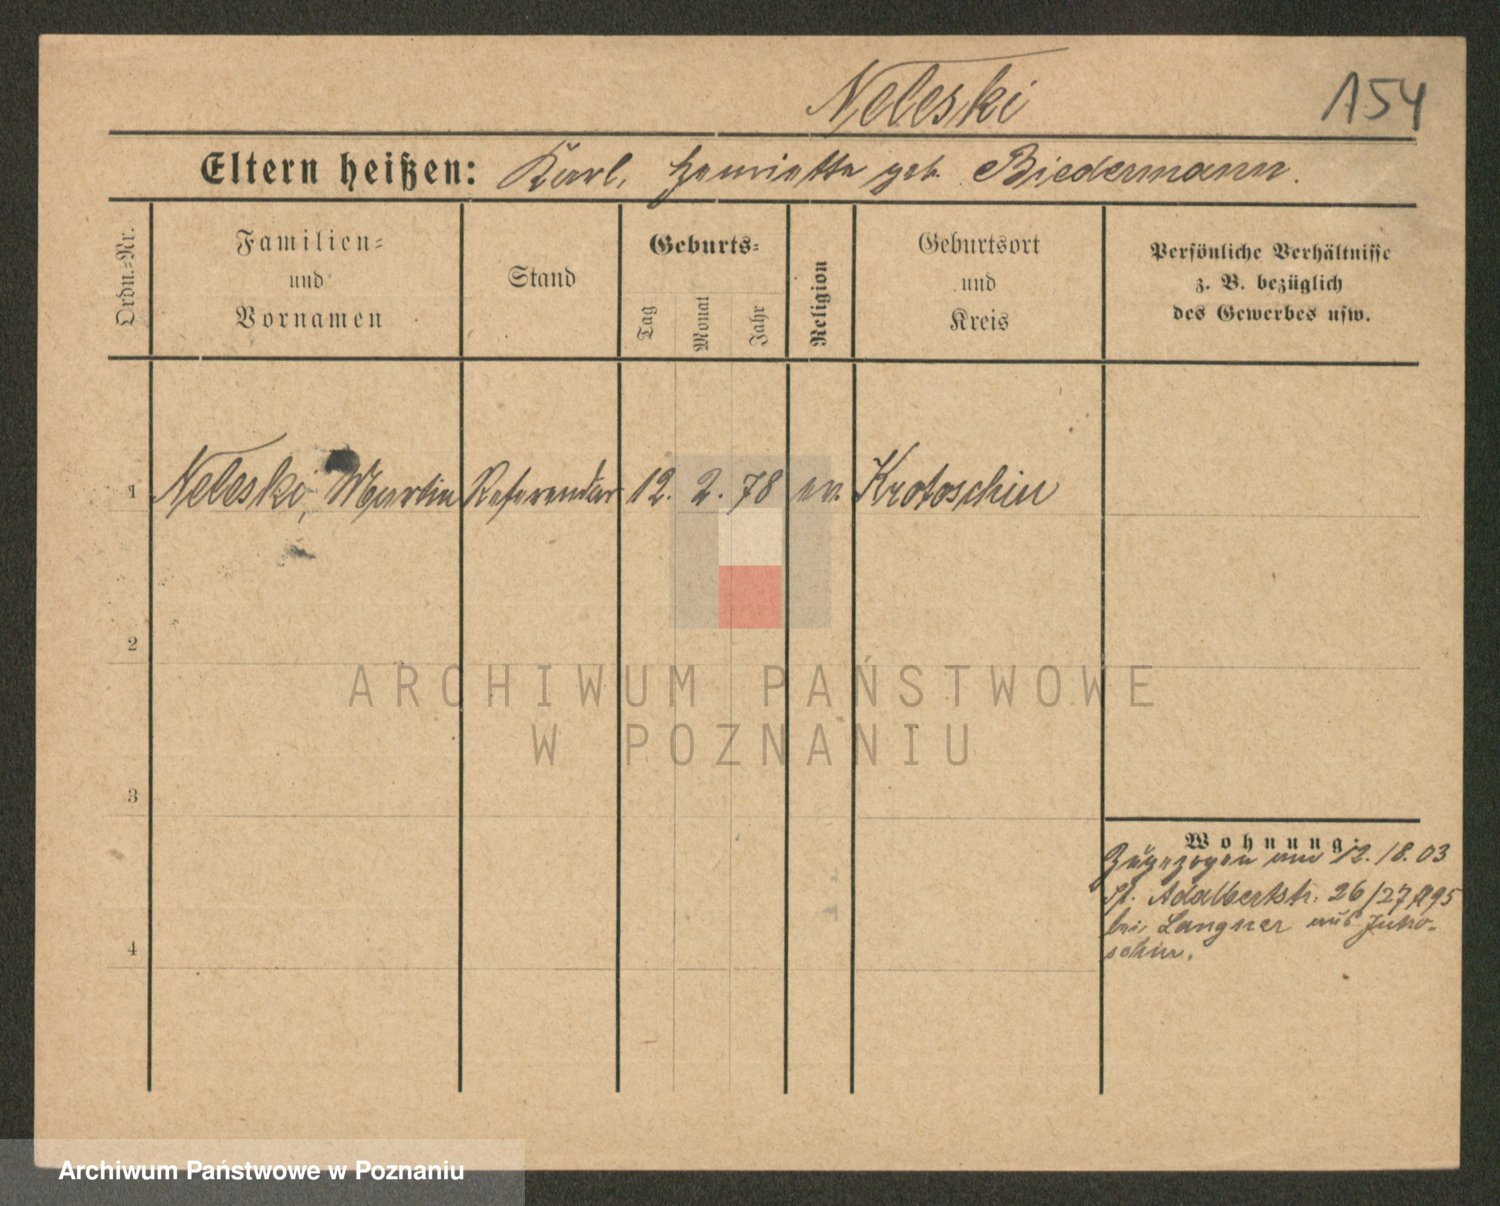 Neleski
154
Eltern heißen: Karl, Henriette geb. Biedermann.
Ordn.-Nr.
Familien-
und
Vornamen
Stand
Geburts-
Tag
Monat
Jahr
Religion
Geburtsort
und
Kreis
Persönliche Verhältnisse
z. B. bezüglich
des Gewerbes usw.
1 Neleski, Martin Referendar 12. 2. 78 ev. Krotoschin
2
ARCHIWUM PAŃSTWOWE
W POZNANIU
3
Wohnung:
Zugezogen am 12./8. 03
St. Adalbertstr. 26/27
bei Langner aus
schin.
4
Archiwum Państwowe w Poznaniu